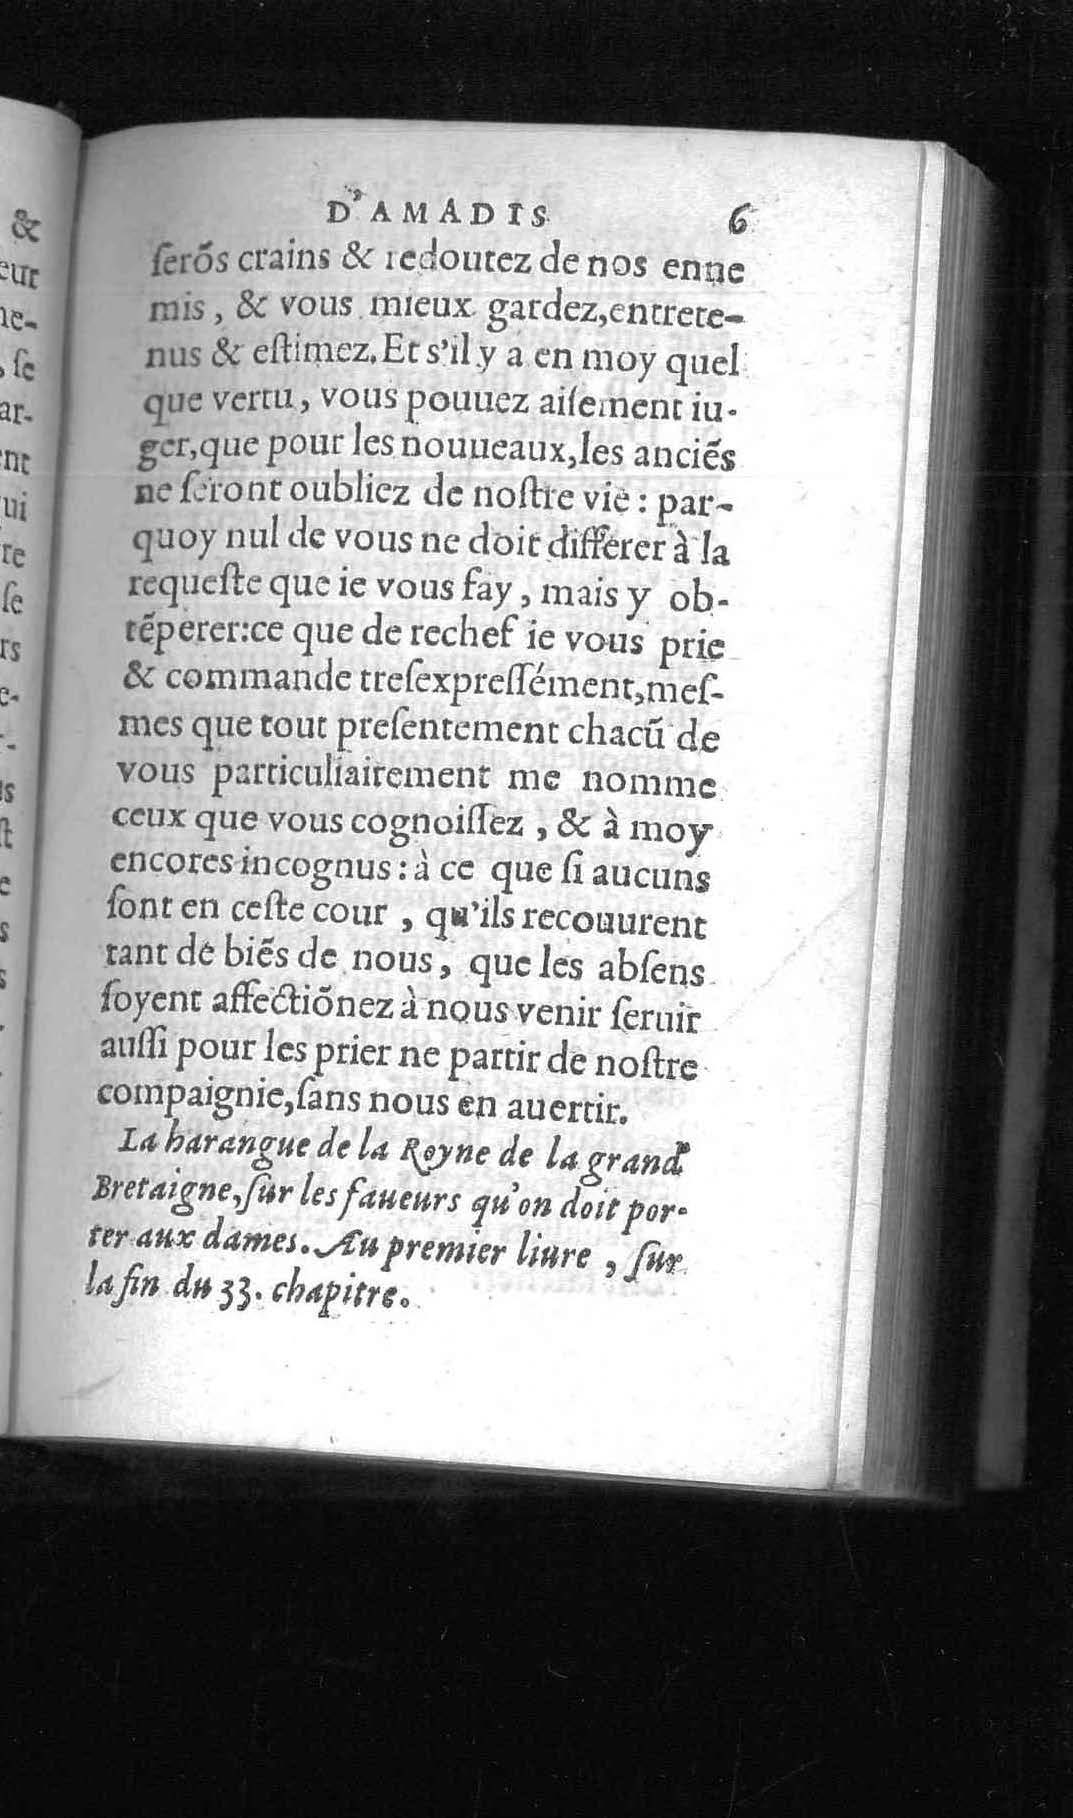 D'AMADIS 6
ſerõs crains & redoutez de nos enne
mis, & vous mieux gardez, entrete-
nus & eſtimez. Et s'il y a en moy quel
que vertu, vous pouuez aiſement iu-
ger, que pour les nouueaux, les anciẽs
ne ſeront oubliez de noſtre vie: par-
quoy nul de vous ne doit differer à la
requeſte que ie vous fay, mais y ob-
tẽperer: ce que de rechef ie vous prie
& commande treſexpreſſément, meſ-
mes que tout preſentement chacũ de
vous particuliairement me nomme
ceux que vous cognoiſſez, & à moy
encores incognus: à ce que ſi aucuns
ſont en ceſte cour, qu'ils recouurent
tant de biẽs de nous, que les abſens
ſoyent affectiõnez à nous venir ſeruir
auſſi pour les prier ne partir de noſtre
compaignie, ſans nous en auertir.
La harangue de la Royne de la grand'
Bretaigne, ſur les faueurs qu'on doit por-
ter aux dames. Au premier liure, ſur
la fin du 33. chapitre.
&
eur
ne-
, ſe
ar-
nt
ui
re
ſe
rs
e-
-
ls
ſt
e
s
s